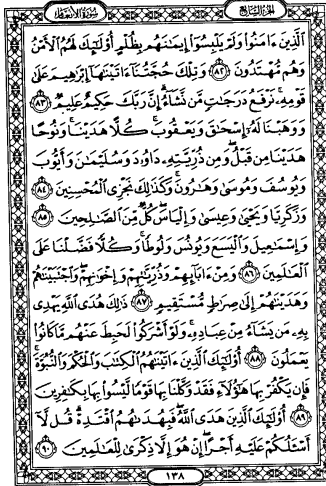 الجزء السابع سورة الأنعام
الَّذِينَ ءَامَنُوا وَلَمْ يَلْبِسُوا إِيمَٰنَهُم بِظُلْمٍ أُولَٰٓئِكَ لَهُمُ الْأَمْنُ
وَهُم مُّهْتَدُونَ ٨٢ وَتِلْكَ حُجَّتُنَآ ءَاتَيْنَٰهَآ إِبْرَٰهِيمَ عَلَىٰ
قَوْمِهِۦ نَرْفَعُ دَرَجَٰتٍ مَّن نَّشَآءُ إِنَّ رَبَّكَ حَكِيمٌ عَلِيمٌ ٨٣
وَوَهَبْنَا لَهُۥٓ إِسْحَٰقَ وَيَعْقُوبَ كُلًّا هَدَيْنَا وَنُوحًا
هَدَيْنَا مِن قَبْلُ وَمِن ذُرِّيَّتِهِۦ دَاوُۥدَ وَسُلَيْمَٰنَ وَأَيُّوبَ
وَيُوسُفَ وَمُوسَىٰ وَهَٰرُونَ وَكَذَٰلِكَ نَجْزِي الْمُحْسِنِينَ ٨٤
وَزَكَرِيَّا وَيَحْيَىٰ وَعِيسَىٰ وَإِلْيَاسَ كُلٌّ مِّنَ الصَّٰلِحِينَ ٨٥
وَإِسْمَٰعِيلَ وَالْيَسَعَ وَيُونُسَ وَلُوطًا وَكُلًّا فَضَّلْنَا عَلَى
الْعَٰلَمِينَ ٨٦ وَمِنْ ءَابَآئِهِمْ وَذُرِّيَّٰتِهِمْ وَإِخْوَٰنِهِمْ وَاجْتَبَيْنَٰهُمْ
وَهَدَيْنَٰهُمْ إِلَىٰ صِرَٰطٍ مُّسْتَقِيمٍ ٨٧ ذَٰلِكَ هُدَى اللَّهِ يَهْدِي
بِهِۦ مَن يَشَآءُ مِنْ عِبَادِهِۦ وَلَوْ أَشْرَكُوا لَحَبِطَ عَنْهُم مَّا كَانُوا
يَعْمَلُونَ ٨٨ أُولَٰٓئِكَ الَّذِينَ ءَاتَيْنَٰهُمُ الْكِتَٰبَ وَالْحُكْمَ وَالنُّبُوَّةَ
فَإِن يَكْفُرْ بِهَا هَٰٓؤُلَآءِ فَقَدْ وَكَّلْنَا بِهَا قَوْمًا لَّيْسُوا بِهَا بِكَٰفِرِينَ
٨٩ أُولَٰٓئِكَ الَّذِينَ هَدَى اللَّهُ فَبِهُدَىٰهُمُ اقْتَدِهْ قُل لَّآ
أَسْـَٔلُكُمْ عَلَيْهِ أَجْرًا إِنْ هُوَ إِلَّا ذِكْرَىٰ لِلْعَٰلَمِينَ ٩٠
١٣٨